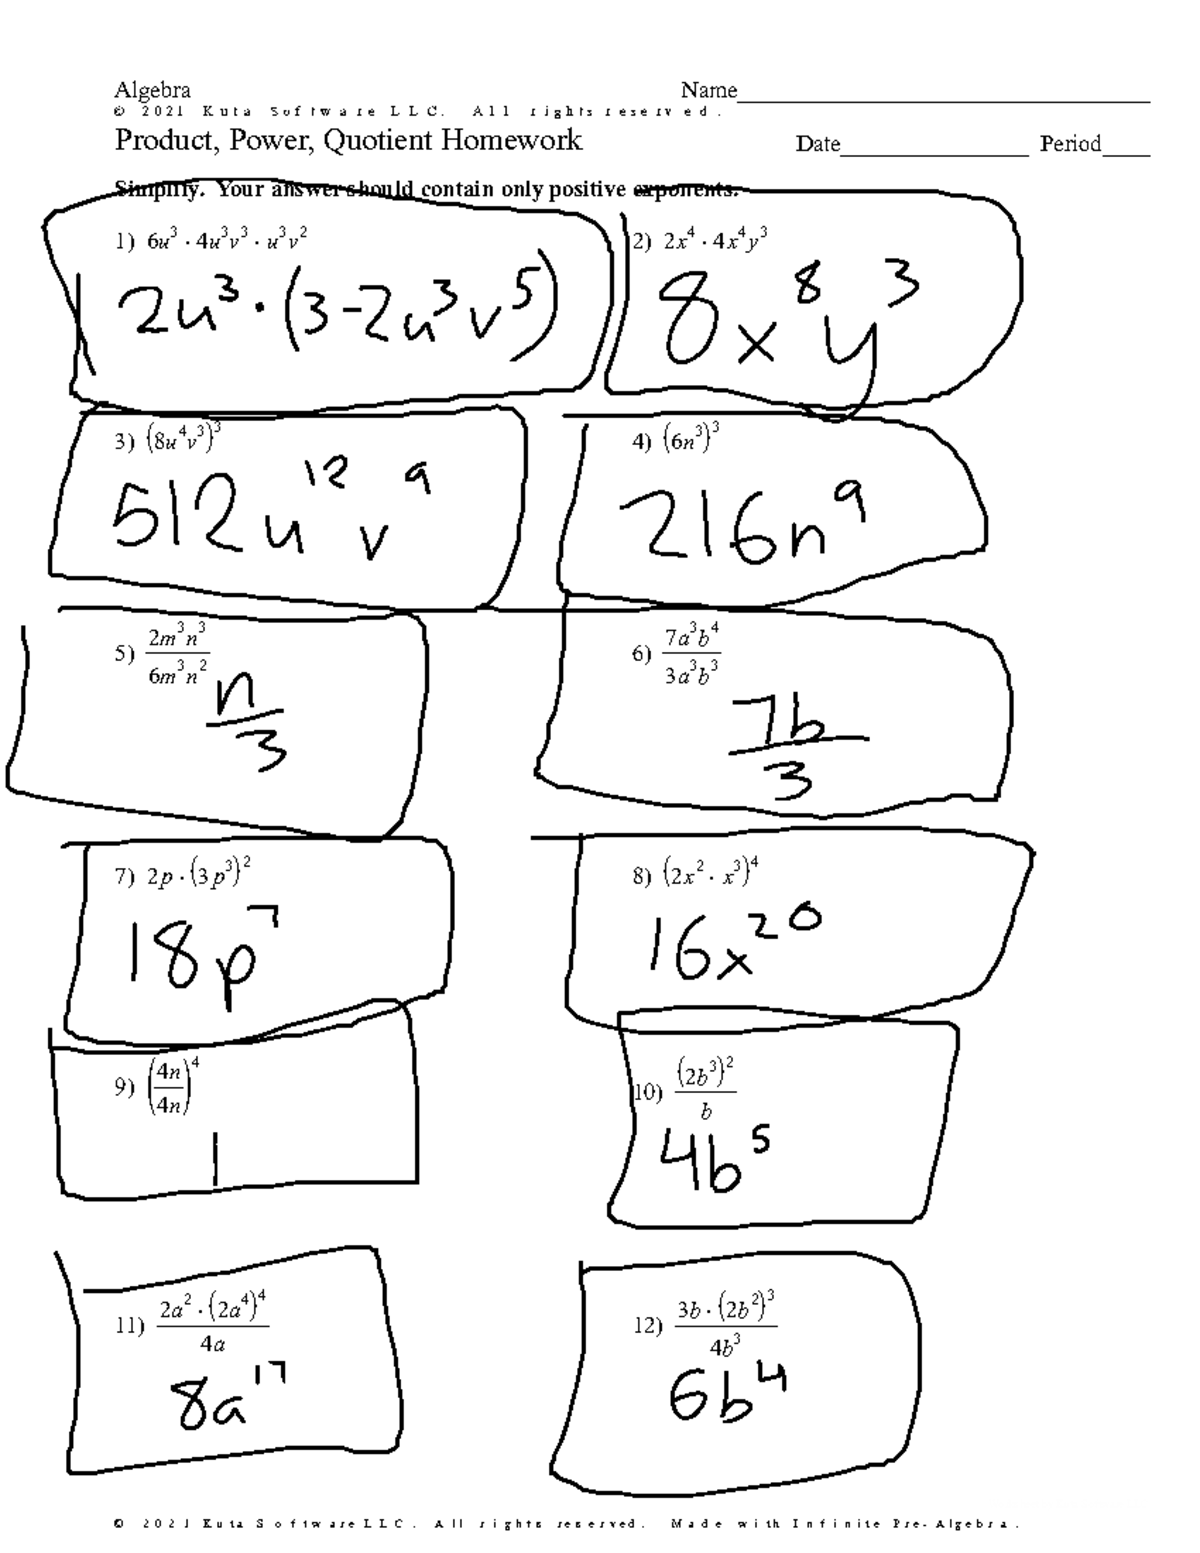 Algebra
Name
© 2021 Kuta Software LLC. All rights reserved.
Product, Power, Quotient Homework
Date Period
Simplify. Your answer should contain only positive exponents.
1) 6u³ · 4u³v³ · u³v²
2u³ · (3-2u³v⁵)
2) 2x⁴ · 4x⁴y³
8x⁸y³
3) (8u⁴v³)³
512u¹²v⁹
4) (6n³)³
216n⁹
5) 2m³n³ / 6m³n²
n/3
6) 7a³b⁴ / 3a³b³
7b/3
7) 2p · (3p³)²
18p⁷
8) (2x² · x³)⁴
16x²⁰
9) (4n/4n)⁴
1
10) (2b³)² / b
4b⁵
11) 2a² · (2a⁴)⁴ / 4a
8a¹⁷
12) 3b · (2b²)³ / 4b³
6b⁴
© 2021 Kuta Software LLC. All rights reserved. Made with Infinite Pre-Algebra.